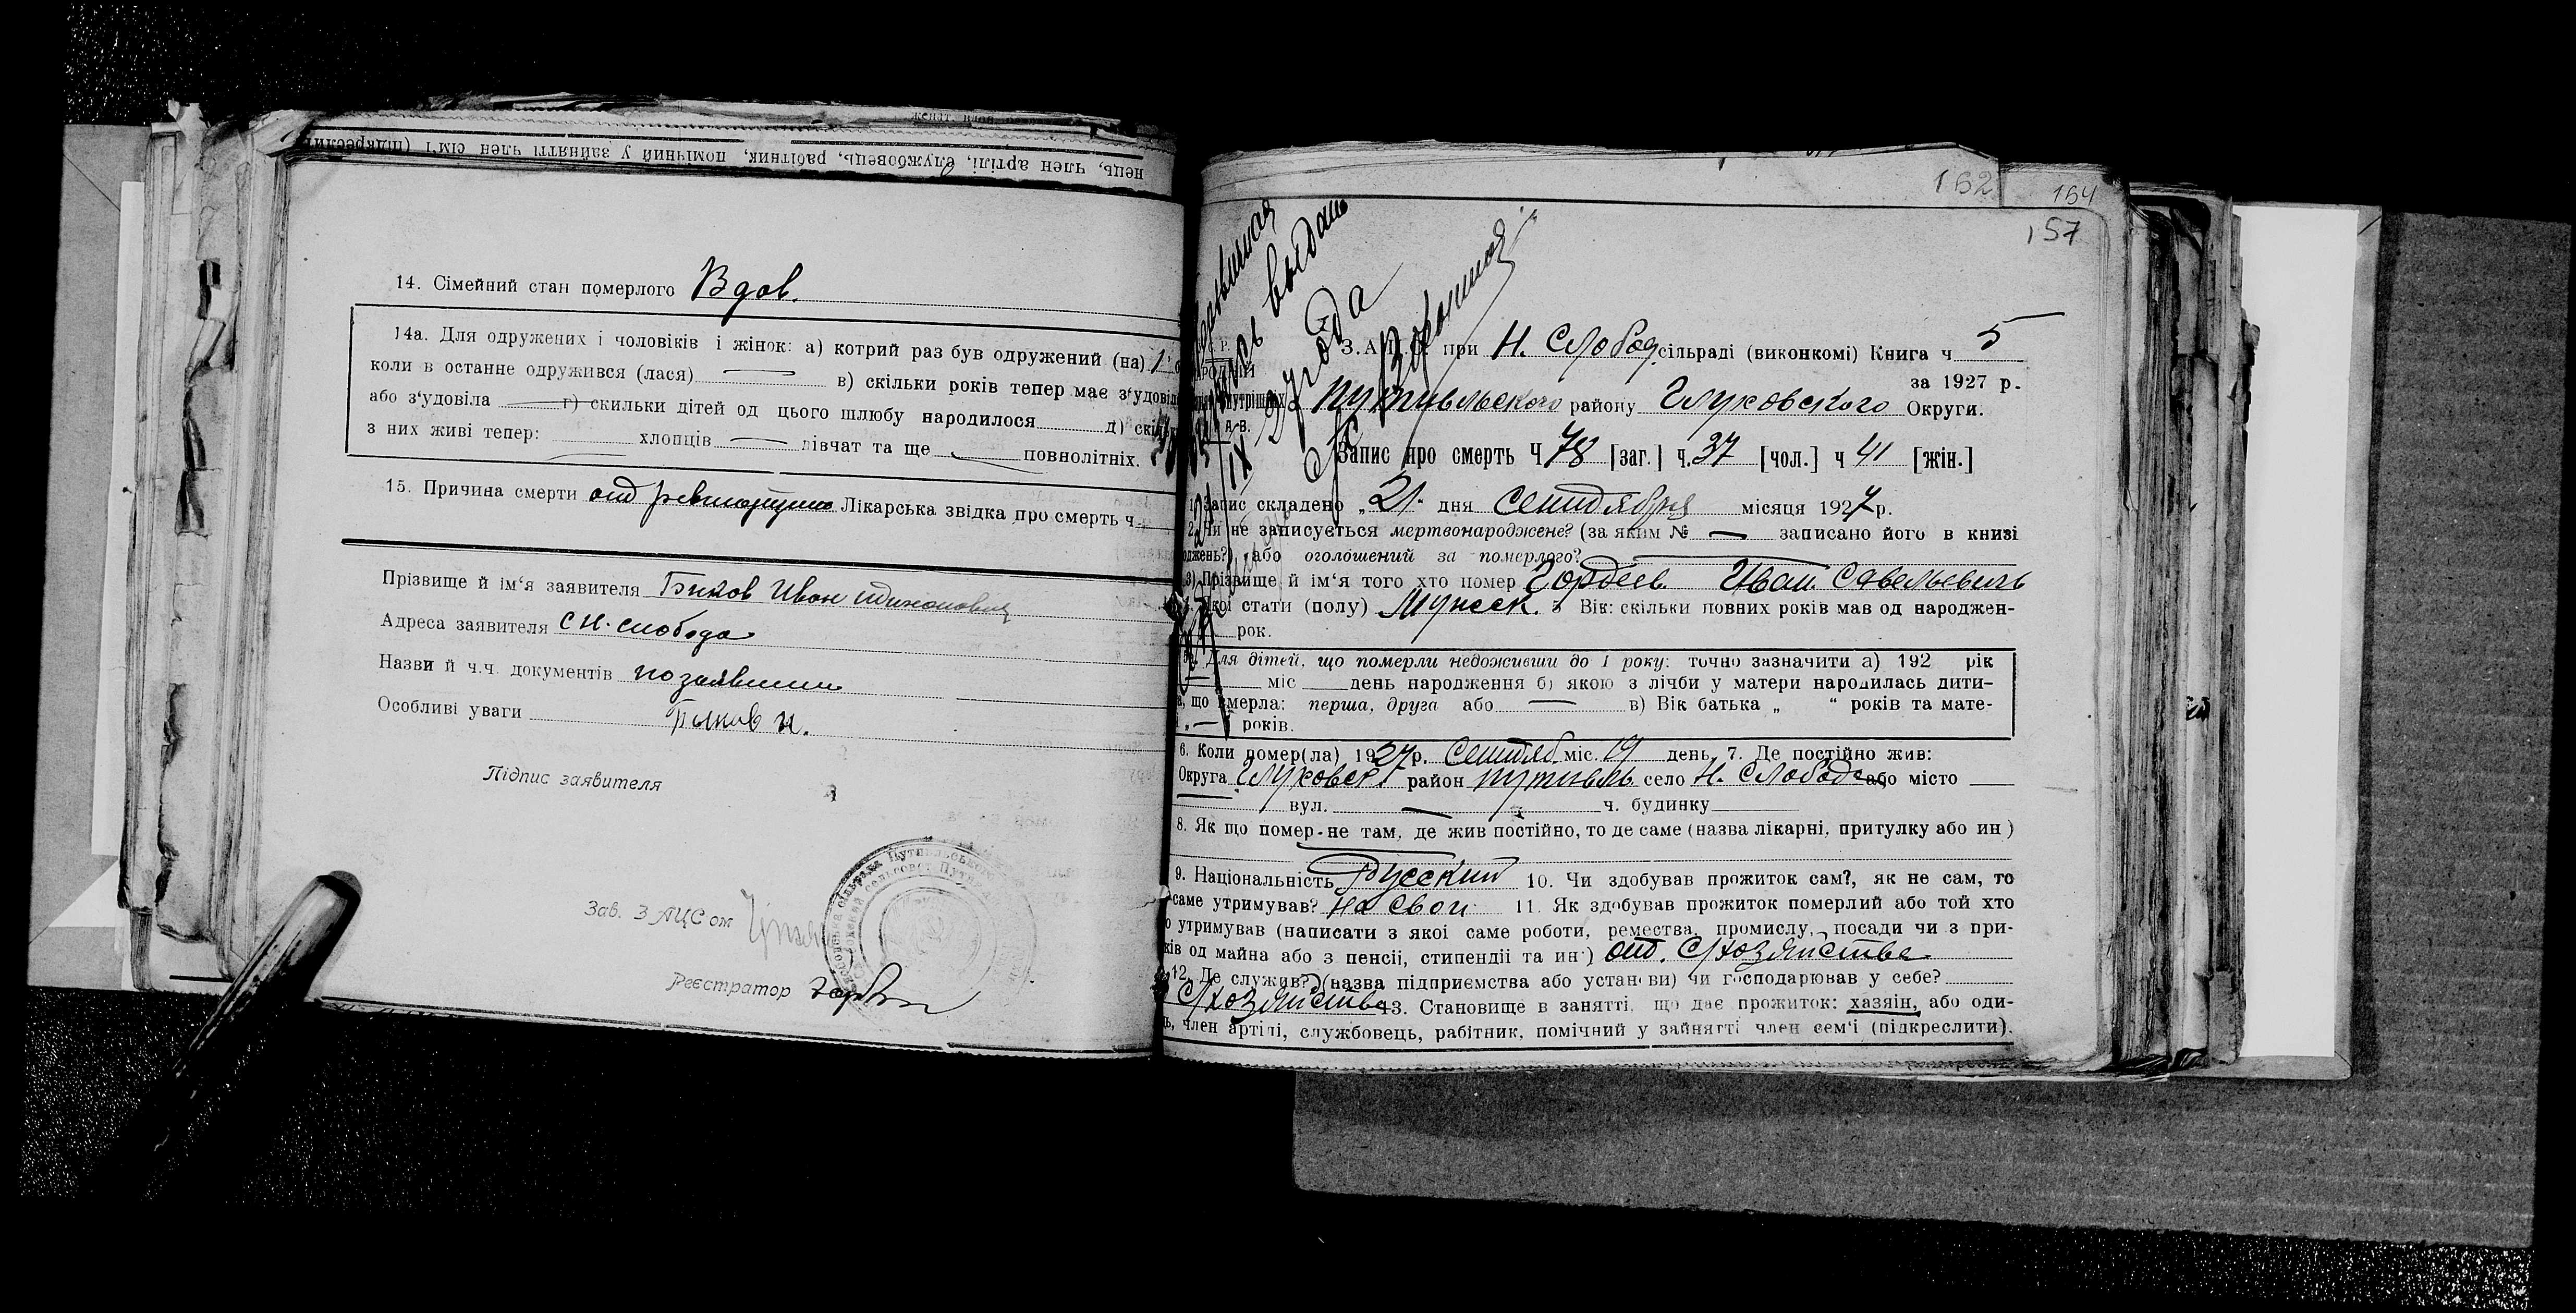 нець, член артілі, службовець, рабітник, помічний у зайнятті член сім'ї (підкреслити)
14. Сімейний стан померлого Вдов.
14а. Для одружених і чоловіків і жінок: а) котрий раз був одружений (на) 1
коли в останне одружився (лася) — в) скільки років тепер має з‘удовіл
або з‘удовіла — г) скильки дітей од цього шлюбу народилося д) скіль
з них живі тепер: хлопців — дівчат та ще повнолітніх.
15. Причина смерти от Лікарська звідка про смерть ч.
Прізвище й ім‘я заявителя Быков Иван
Адреса заявителя С Н. слобода
Назви й ч.ч. документів по заявлению
Особливі уваги Быков И.
Підпис заявителя
Зав. ЗАЦСом
Реєстратор
162
164
157
З.А.Г.С. при Н. Слобод. сільраді (виконкомі) Книга ч 5
за 1927 р.
Путивльского району Глуховского Округи.
Запис про смерть Ч 78 [заг.] ч. 37 [чол.] ч 41 [жін.]
1. Запис складено „ 21 дня Сентября місяця 1927 р.
2. Чи не записується мертвонароджене? (за яким № — записано його в книзі
оджень?), або оголошений за померлого?
3) Прізвище й ім‘я того хто помер Гордеев Иван Савельевич
Якої стати (полу) Мужск. Вік: скільки повних років мав од народжен-
рок.
Для дітей, що померли недоживши до 1 року: точно зазначити а) 192 рік
міс день народження б) якою з лічби у матери народилась дити-
а, що вмерла: перша, друга або — в) Вік батька „ “ років та мате-
„ — років.
6. Коли помер(ла) 1927 р. Сентяб міс. 19 день, 7. Де постійно жив:
Округа Глуховск. район Путивль село Н. Слобода або місто
вул. — ч. будинку
8. Як що помер-не там, де жив постійно, то де саме (назва лікарні, притулку або ин)
9. Національність Русский 10. Чи здобував прожиток сам?, як не сам, то
саме утримував? на свои 11. Як здобував прожиток померлий або той хто
о утримував (написати з якої саме роботи, ремества, промислу, посади чи з при-
ків од майна або з пенсії, стипендії та ин.) от. С/хозяйства
12. Де служив? (назва підприємства або установи) чи господарював у себе?
С/хозяйство 13. Становище в занятті, що дає прожиток: хазяін, або оди-
ь, член артілі, службовець, рабітник, помічний у зайнятті член сем‘і (підкреслити).